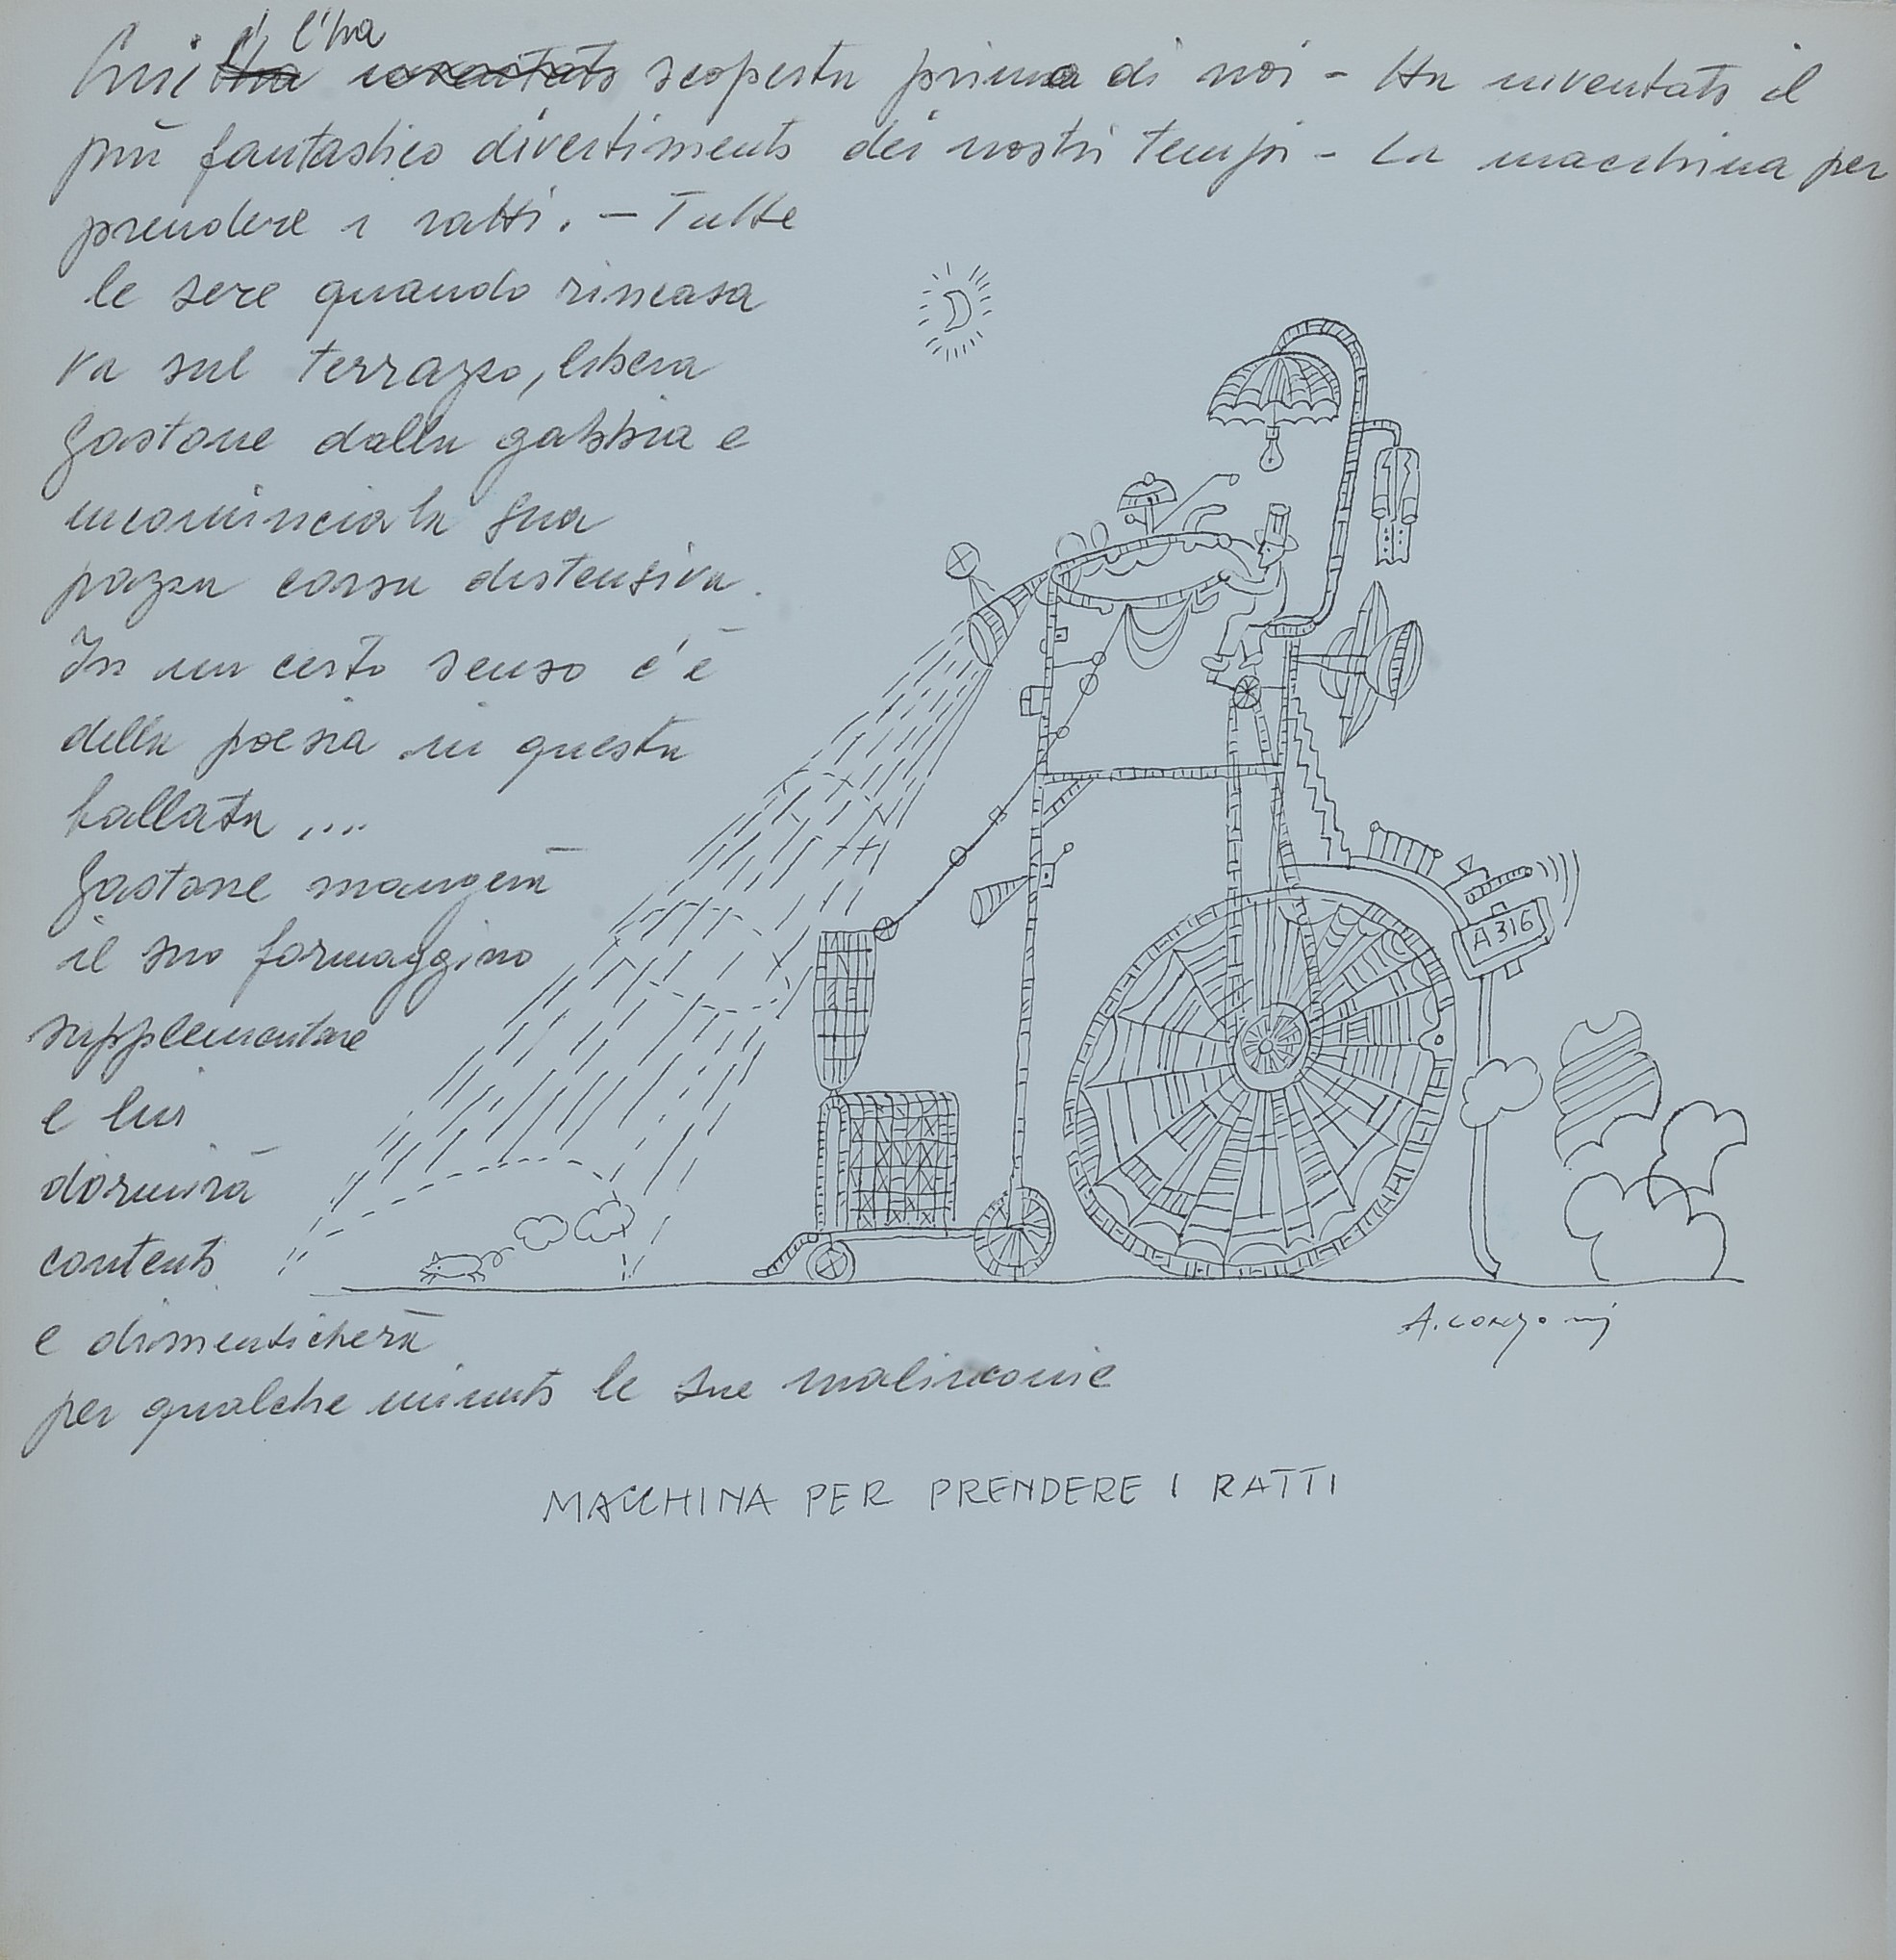 Lui l'ha scoperta prima di noi - Ha inventato il
più fantastico divertimento dei nostri tempi - La macchina per
prendere i ratti. - Tutte
le sere quando rincasa
va sul terrazzo, libera
Gastone dalla gabbia e
incomincia la sua
pazza corsa distensiva.
In un certo senso c'è
della poesia in questa
ballata ....
Gastone mangerà
il suo formaggino
supplementare
e lui
dormirà
contento
e dimenticherà
per qualche minuto le sue malinconie
A 316
MACCHINA PER PRENDERE I RATTI